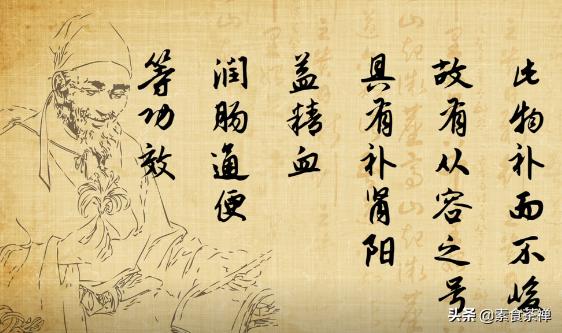 此物补而不峻
故有从容之号
具有补肾阳
益精血
润肠通便
等功效
头条 @素食茶禅